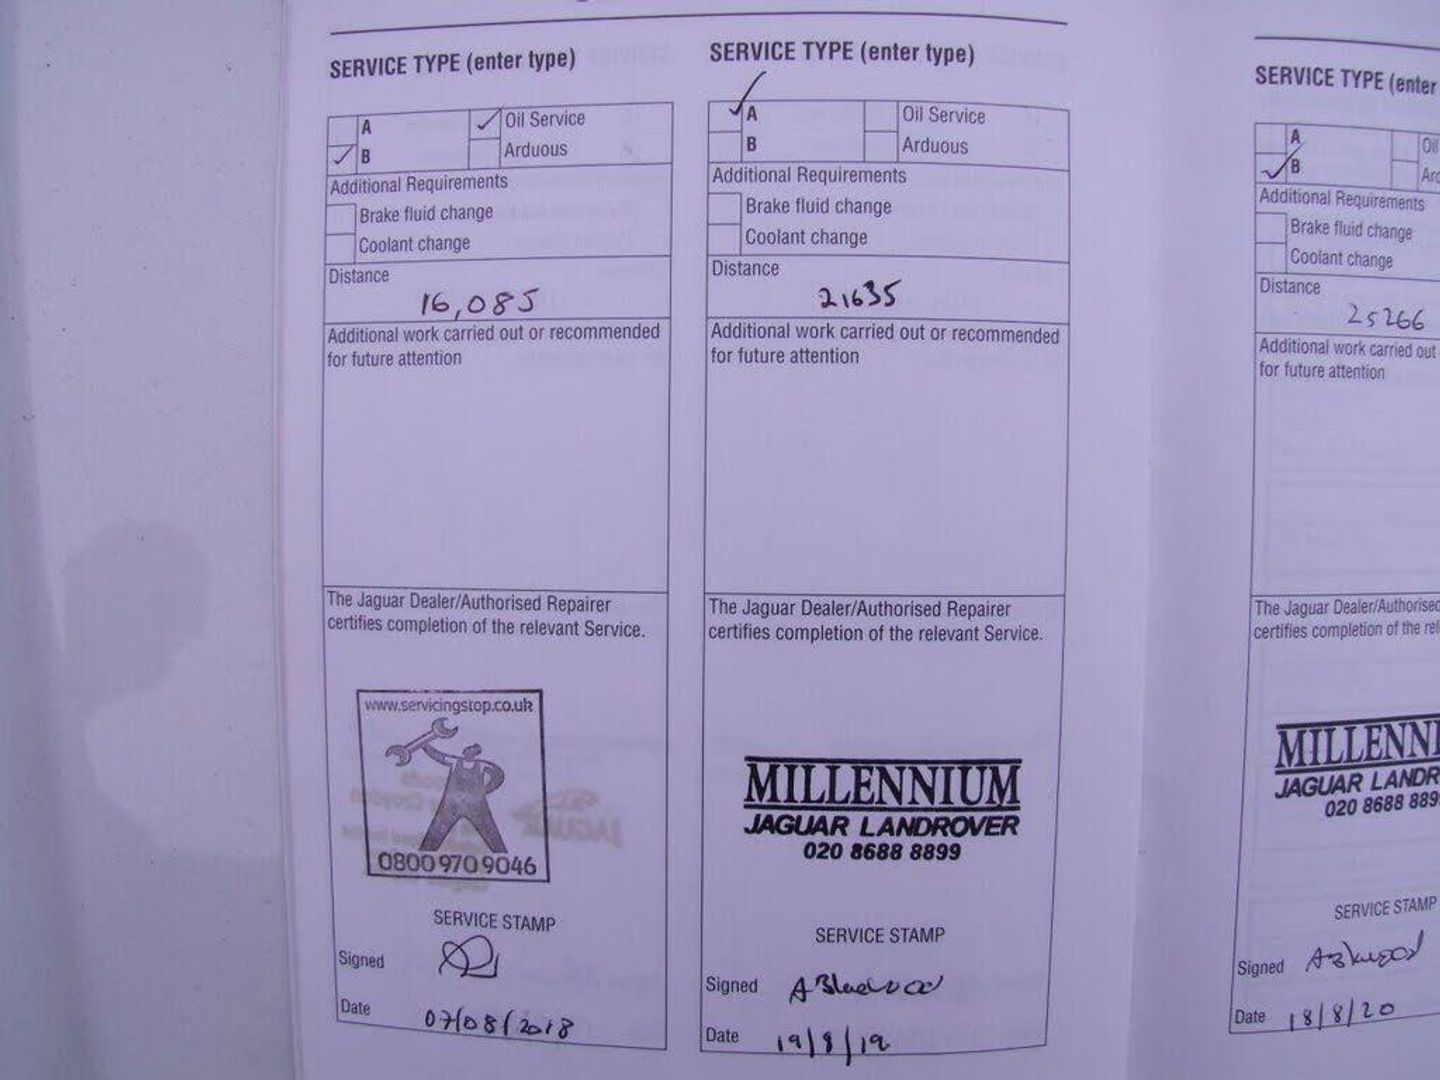 SERVICE TYPE (enter type)
A
Oil Service
B
Arduous
Additional Requirements
Brake fluid change
Coolant change
Distance
16,085
Additional work carried out or recommended
for future attention
The Jaguar Dealer/Authorised Repairer
certifies completion of the relevant Service.
www.servicingstop.co.uk
0800 970 9046
SERVICE STAMP
Signed
Date
07/08/2018
SERVICE TYPE (enter type)
A
Oil Service
B
Arduous
Additional Requirements
Brake fluid change
Coolant change
Distance
21635
Additional work carried out or recommended
for future attention
The Jaguar Dealer/Authorised Repairer
certifies completion of the relevant Service.
MILLENNIUM
JAGUAR LANDROVER
020 8688 8899
SERVICE STAMP
Signed
Date
19/8/19
SERVICE TYPE (enter
A
Oil
B
Additional Requirements
Brake fluid change
Coolant change
Distance
25266
Additional work carried out
for future attention
The Jaguar Dealer/Authorised
certifies completion of the rel
MILLENNI
JAGUAR LANDR
020 8688 889
SERVICE STAMP
Signed
Date
18/8/20